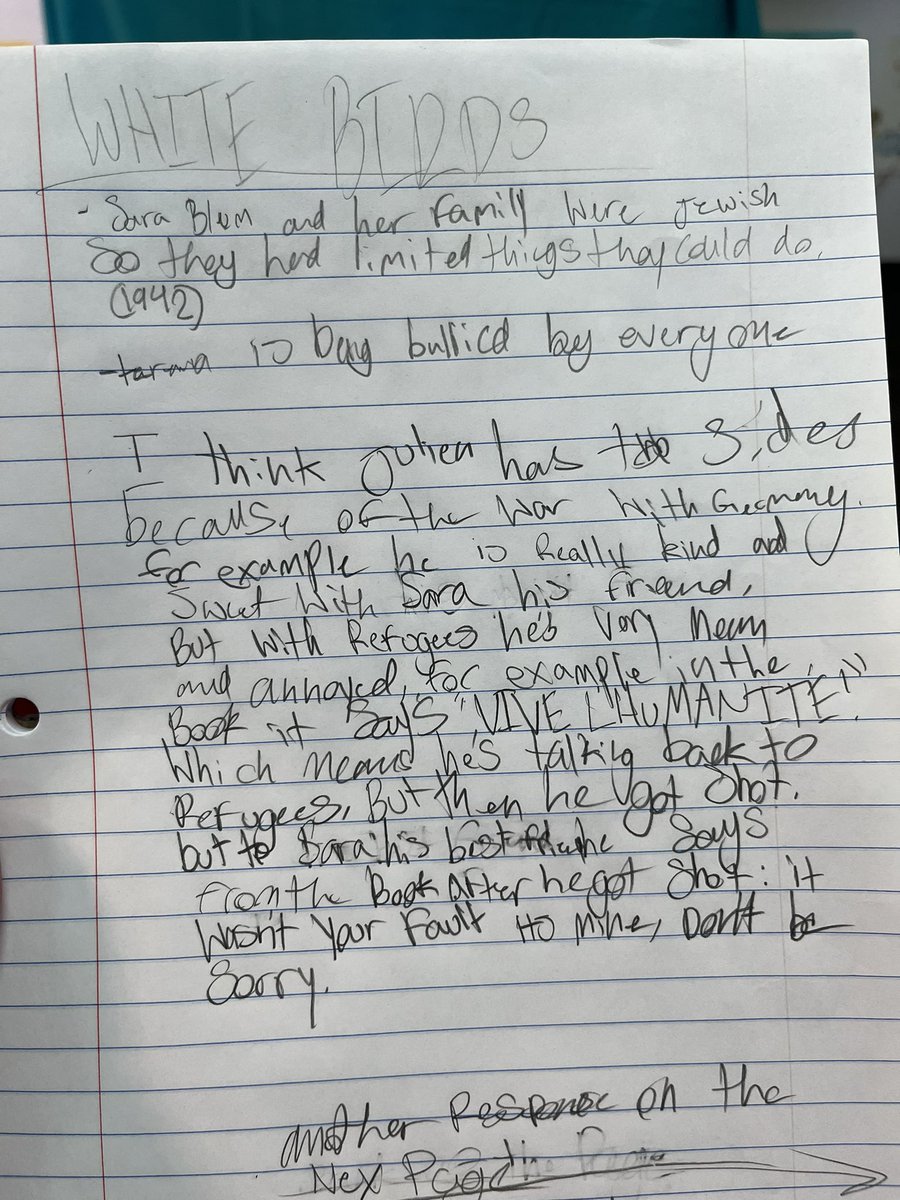 WHITE BIRDS
- Sara Blum and her family were Jewish
So they had limited things they could do.
(1942)
is beng bullied by everyone
I think Julien has two sides
because of the war with Germany.
for example he is Really kind and
Sweet with Sara his friend,
But with Refogees he's very mean
and annoyed, for example in the
Book it says "VIVE L'HUMANITE!"
Which means he's talking back to
Refugees, But then he got shot.
but to Sara his best he says
from the Book After he got shot: it
Wasn't Your Fault its mine, Don't be
Sorry.
another Response on the
Nex